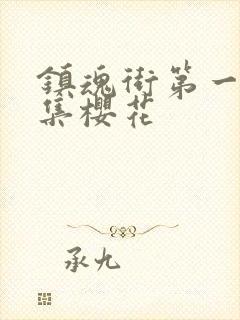 鎮魂街第一
集櫻花
承九